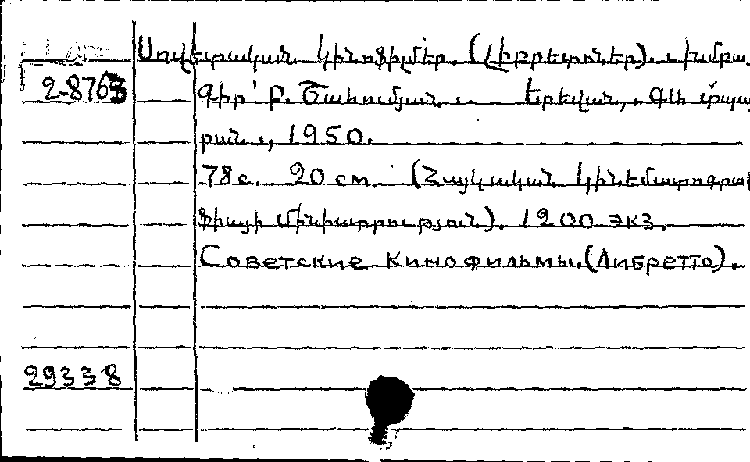 Սովետական կինոֆիլմեր. (Լիբրետոներ). Խմբա.
2-8763 գիր՝ Բ. Շահումյան. Երևան, Գլխ տպա
րան., 1950.
78 с. 20 см. (Հայկական կինեմատոգրա
ֆիայի մինիստրություն). 1200 экз.
Советские кинофильмы. (Либретто).
29338